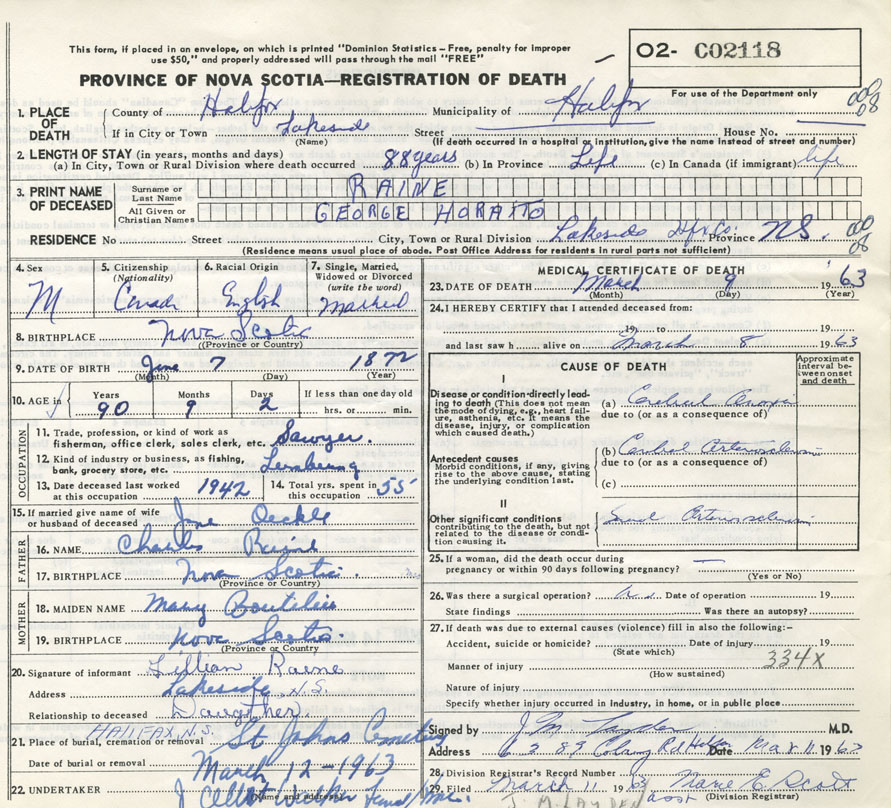 This form, if placed in an envelope, on which is printed "Dominion Statistics - Free, penalty for improper
use $50," and properly addressed will pass through the mail "FREE"
O2- C02118
PROVINCE OF NOVA SCOTIA—REGISTRATION OF DEATH
For use of the Department only
1. PLACE OF DEATH
County of Halifax Municipality of Halifax
If in City or Town Lakeside Street House No.
(Name) (If death occurred in a hospital or institution, give the name instead of street and number)
2. LENGTH OF STAY (in years, months and days)
(a) In City, Town or Rural Division where death occurred 88 years (b) In Province Life (c) In Canada (if immigrant) life
3. PRINT NAME OF DECEASED
Surname or Last Name RAINE
All Given or Christian Names GEORGE HORATIO
RESIDENCE No Street City, Town or Rural Division Lakeside Hfx Co. Province NS.
(Residence means usual place of abode. Post Office Address for residents in rural parts not sufficient)
4. Sex M
5. Citizenship (Nationality) Canad
6. Racial Origin English
7. Single, Married, Widowed or Divorced (write the word) Married
8. BIRTHPLACE Nova Scotia
(Province or Country)
9. DATE OF BIRTH June 7 1872
(Month) (Day) (Year)
10. AGE in
Years Months Days If less than one day old
90 9 2 hrs. or min.
OCCUPATION
11. Trade, profession or kind of work as
fisherman, office clerk, sales clerk, etc. Sawyer.
12. Kind of industry or business, as fishing,
bank, grocery store, etc. Lumbering
13. Date deceased last worked
at this occupation 1942
14. Total yrs. spent in
this occupation 55
15. If married give name of wife
or husband of deceased Jane
FATHER
16. NAME Charles Raine
17. BIRTHPLACE Nova Scotia.
(Province or Country)
MOTHER
18. MAIDEN NAME Mary Boutilier
19. BIRTHPLACE Nova Scotia.
(Province or Country)
20. Signature of informant Lillian Raine
Address Lakeside, N.S.
Relationship to deceased Daughter
HALIFAX, N.S.
21. Place of burial, cremation or removal St Johns Cemetery
Date of burial or removal March 12-1963
22. UNDERTAKER
(Name and address)
MEDICAL CERTIFICATE OF DEATH
23. DATE OF DEATH March 9 1963
(Month) (Day) (Year)
24. I HEREBY CERTIFY that I attended deceased from:
19 to 19
and last saw h alive on March 8 1963
CAUSE OF DEATH
Approximate interval between onset and death
I
Disease or condition directly leading to death (This does not mean the mode of dying, e.g., heart failure, asthenia, etc. It means the disease, injury, or complication which caused death.)
(a) Cerebral Anoxia
due to (or as a consequence of)
Antecedent causes
Morbid conditions, if any, giving rise to the above cause, stating the underlying condition last.
(b) Cerebral Arteriosclerosis
due to (or as a consequence of)
(c)
II
Other significant conditions
contributing to the death, but not related to the disease or condition causing it.
Arteriosclerosis
25. If a woman, did the death occur during
pregnancy or within 90 days following pregnancy? —
(Yes or No)
26. Was there a surgical operation? no Date of operation 19
State findings Was there an autopsy?
27. If death was due to external causes (violence) fill in also the following:-
Accident, suicide or homicide? Date of injury 19
(State which)
334X
Manner of injury
(How sustained)
Nature of injury
Specify whether injury occurred in industry, in home, or in public place
Signed by J M Layden M.D.
Address Date Mar 11 1963
28. Division Registrar's Record Number
29. Filed March 11 1963 Marie E. Scott
J. M. LAYDEN asst (Division Registrar)